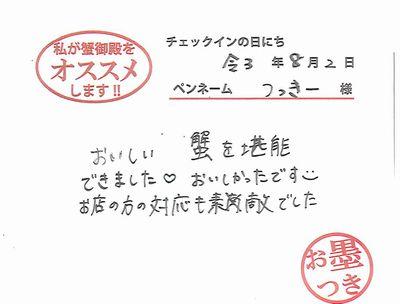 私が蟹御殿を
オススメ
します!!
チェックインの日にち
令3年8月2日
ペンネーム つっきー 様
おいしい 蟹を堪能
できました♡ おいしかったです
お店の方の対応も素敵でした
お墨
つき